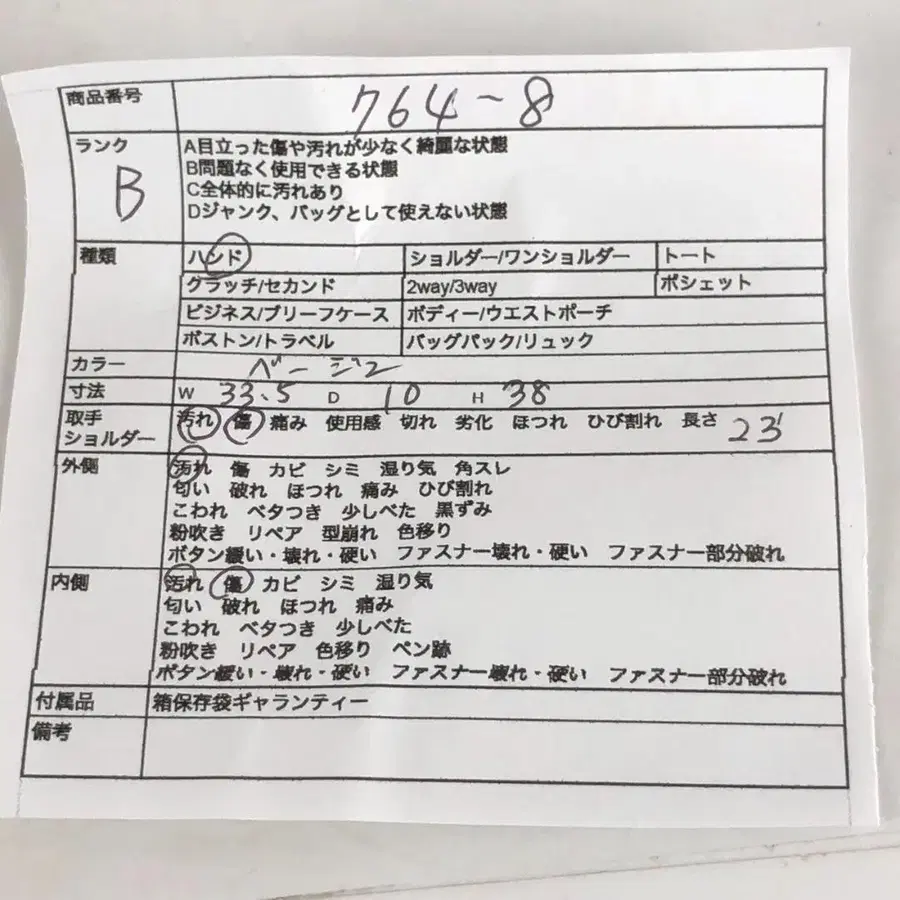 商品番号 764-8
ランク B
A目立った傷や汚れが少なく綺麗な状態
B問題なく使用できる状態
C全体的に汚れあり
Dジャンク、バッグとして使えない状態
種類 ハンド ショルダー/ワンショルダー トート
クラッチ/セカンド 2way/3way ポシェット
ビジネス/ブリーフケース ボディー/ウエストポーチ
ボストン/トラベル バッグパック/リュック
カラー ベージュ
寸法 W 33.5 D 10 H 38
取手 汚れ 傷 痛み 使用感 切れ 劣化 ほつれ ひび割れ 長さ 23
ショルダー
外側 汚れ 傷 カビ シミ 湿り気 角スレ
匂い 破れ ほつれ 痛み ひび割れ
こわれ ベタつき 少しべた 黒ずみ
粉吹き リペア 型崩れ 色移り
ボタン緩い・壊れ・硬い ファスナー壊れ・硬い ファスナー部分破れ
内側 汚れ 傷 カビ シミ 湿り気
匂い 破れ ほつれ 痛み
こわれ ベタつき 少しべた
粉吹き リペア 色移り ペン跡
ボタン緩い・壊れ・硬い ファスナー壊れ・硬い ファスナー部分破れ
付属品 箱保存袋ギャランティー
備考